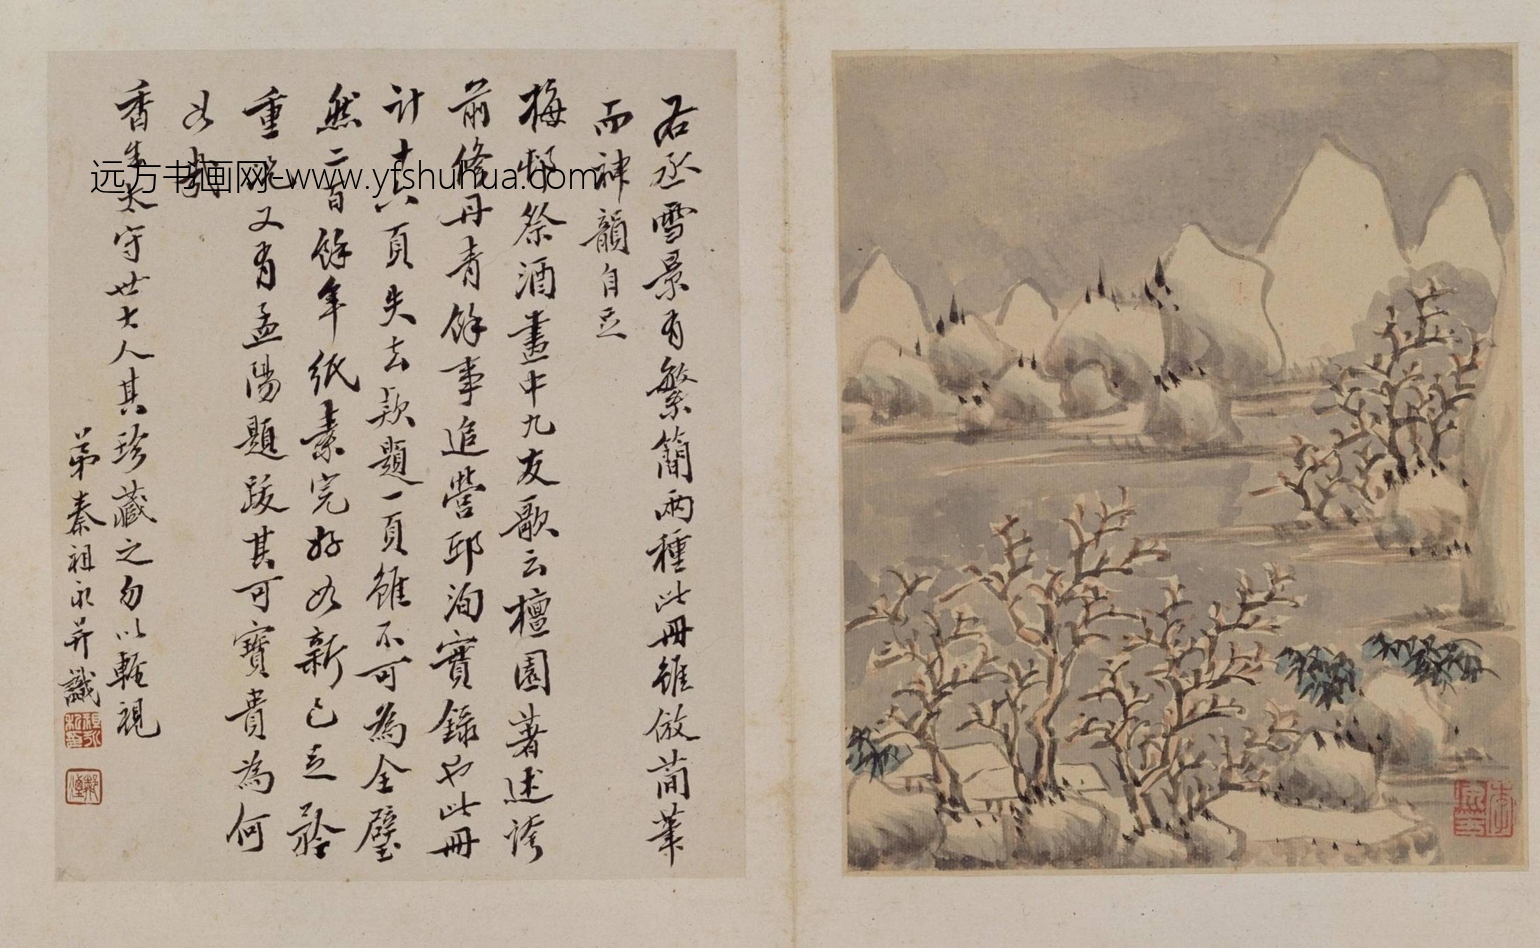 右丞雪景有繁簡兩種此冊雖倣簡筆
而神韻自足
梅邨祭酒畫中九友歌云檀園著述誇
前修丹青餘事追營邱洵實錄也此冊
計十六頁失去款題一頁雖不可為全璧
然二百餘年紙素完好如新已足矜
重況又有孟陽題跋其可寶貴為何
如哉
香生太守世大人其珍藏之勿以輕視
弟秦祖永并識
远方书画网-www.yfshuhua.com